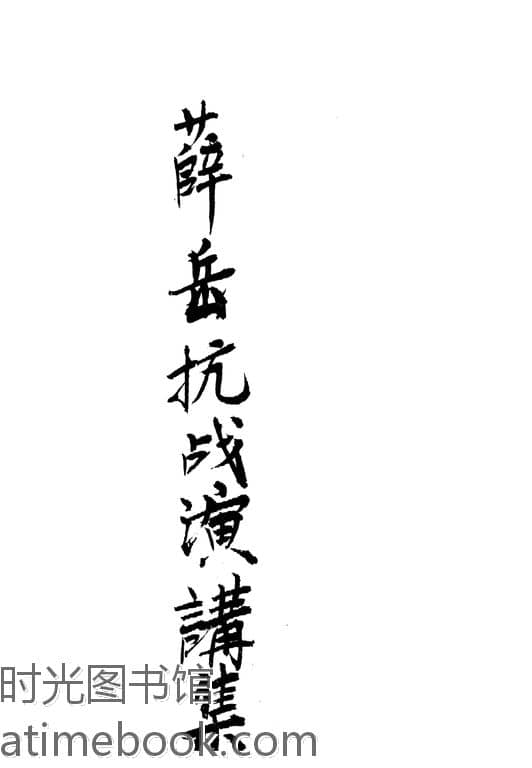 薛岳抗战演講集
时光图书馆
atimebook.com